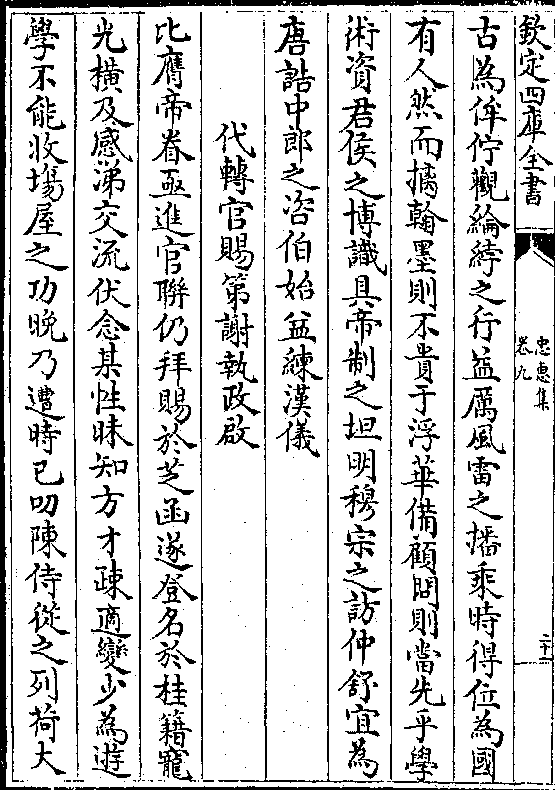 欽定四庫全書
忠惠集
卷九
二十一
古為侔佇觀綸綍之行益厲風雷之播乘時得位為國
有人然而摛翰墨則不貴于浮華備顧問則當先乎學
術資君侯之博識具帝制之坦明穆宗之訪仲舒宜為
唐誥中郎之咨伯始益練漢儀
代轉官賜第謝執政啟
比膺帝眷亟進官聯仍拜賜於芝函遂登名於桂籍寵
光橫及感涕交流伏念某性昧知方才疎適變少為遊
學不能收塲屋之功晚乃遭時已叨陳侍從之列荷大